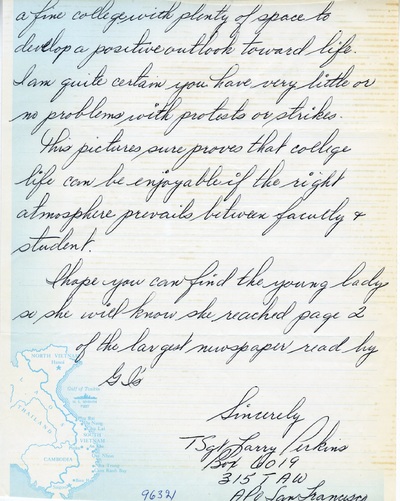 a fine college with plenty of space to
develop a positive outlook toward life.
I am quite certain you have very little or
no problems with protests or strikes.
This pictures sure proves that college
life can be enjoyable if the right
atmosphere prevails between faculty &
student.
I hope you can find the young lady
so she will know she reached page 2
of the largest newspaper read by
GIs
Sincerely
TSgt Larry Perkins
Box 6019
315 TAW
APO San Francisco
96321
NORTH VIETNAM
Hanoi
Gulf of Tonkin
LAOS
THAILAND
CAMBODIA
SOUTH
VIETNAM